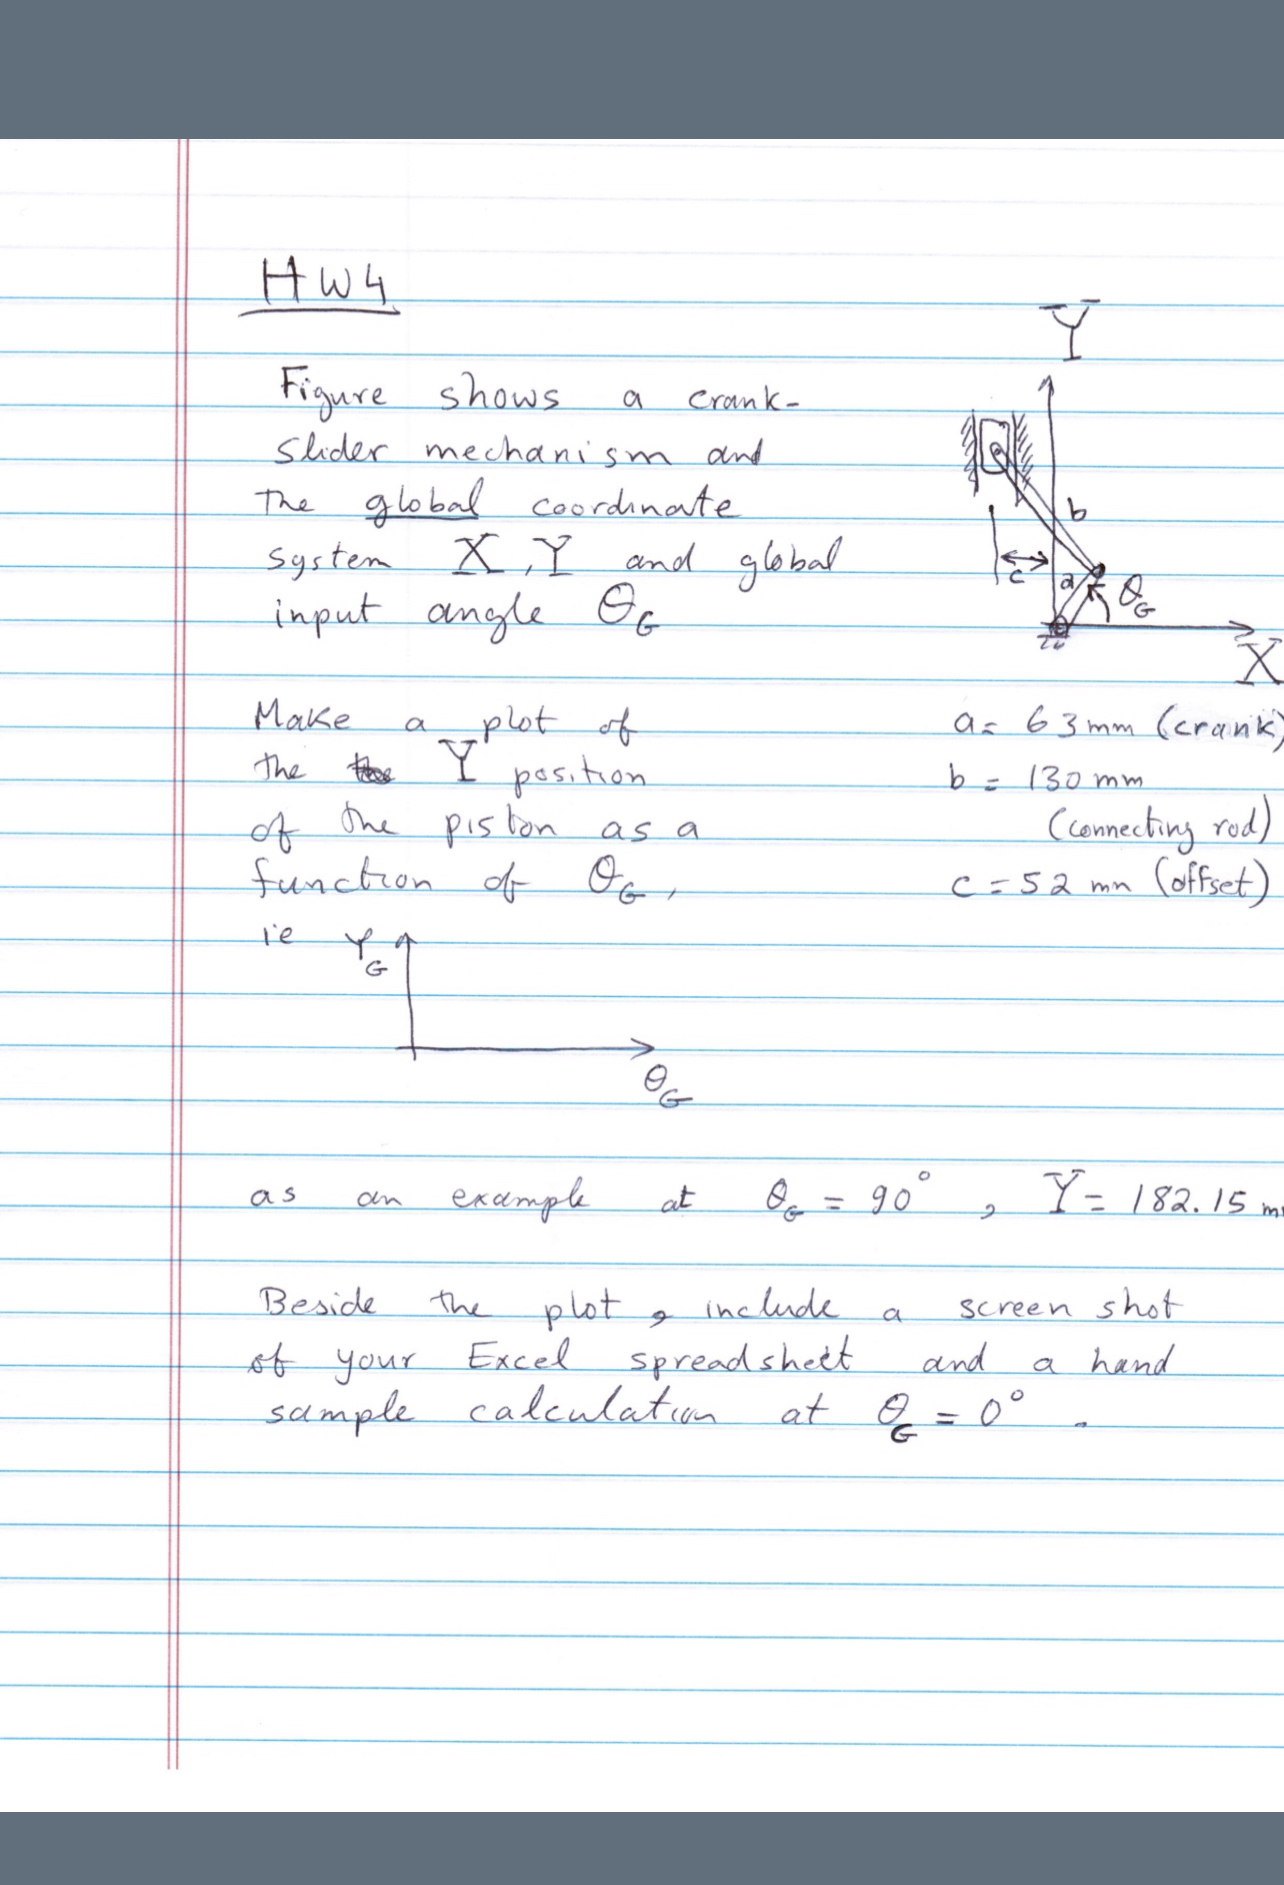 HW4
Y
Figure shows a crank-
slider mechanism and
the global coordinate
system X, Y and global
input angle θG
b
c
a
θG
X
Make a plot of
the Y position
of the piston as a
function of θG,
ie
a= 63mm (crank)
b = 130 mm
(connecting rod)
c = 52 mm (offset)
YG
θG
as an example at θG = 90°, Y= 182.15
Beside the plot, include a screen shot
of your Excel spreadsheet and a hand
sample calculation at θG = 0°.